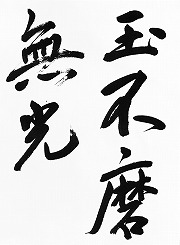 玉不磨
無光